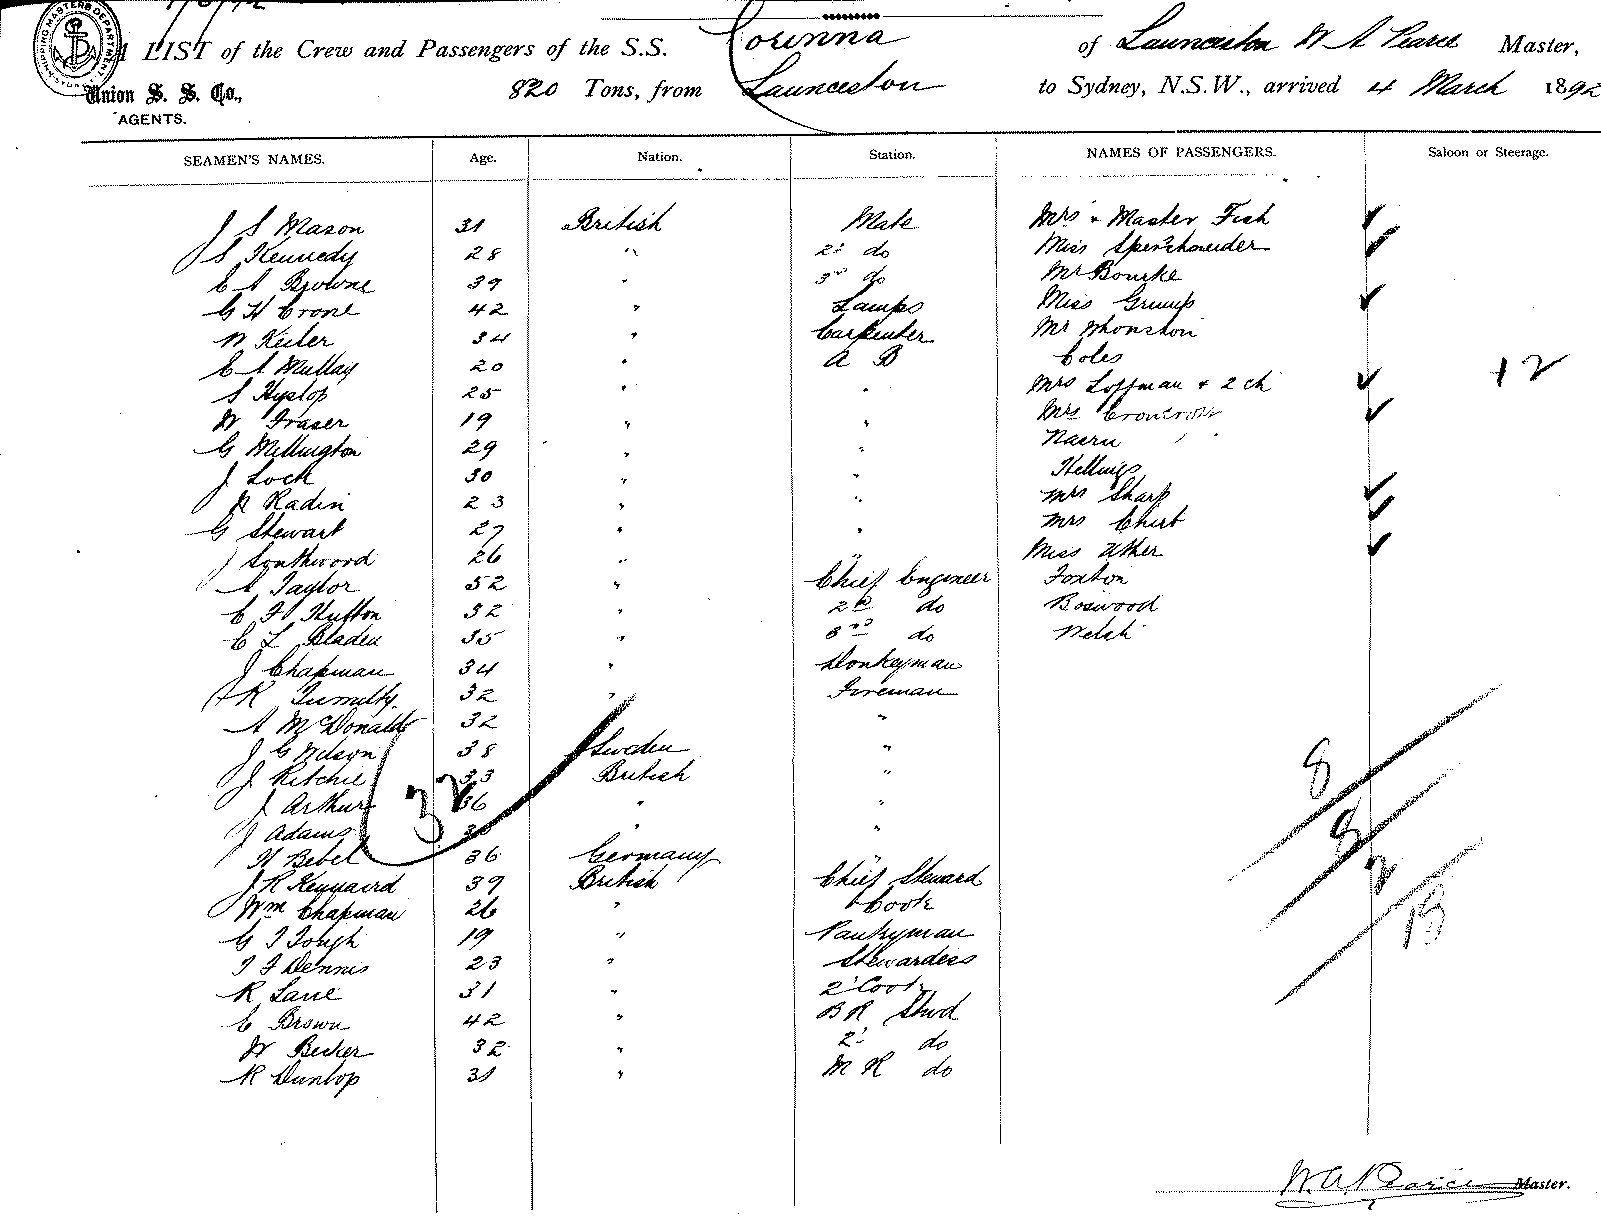 7/3/92
SHIPPING MASTERS DEPARTMENT
A LIST of the Crew and Passengers of the S.S. Corinna of Launceston W A Pearce Master,
Union S. S. Co., 820 Tons, from Launceston to Sydney, N.S.W., arrived 4 March 1892
AGENTS.
SEAMEN'S NAMES. Age. Nation. Station. NAMES OF PASSENGERS. Saloon or Steerage.
J S Mason 31 British Mate Mrs & Master Fish
S Kennedy 28 " 2d do Miss
E A Browne 39 " 3rd do Mr Bourke
G H Crone 42 " Lamps Miss
34 " Carpenter Mr
E A Mullay 20 " A B Coles
S Hyslop 25 " " Mrs Loffman & 2 ch
W Fraser 19 " " Mrs
G Millington 29 " "
J Lock 30 " " Hellings
Radin 23 " " Mrs Sharp
G Stewart 27 " " Mrs
J Southwood 26 " " Miss Uther
A Taylor 52 " Chief Engineer Foxton
E F Hutton 32 " 2d do Boswood
E L Bladen 35 " 3rd do Welsh
J Chapman 34 " Donkeyman
R Tumilty 32 " Fireman
A McDonald 32 "
J G Nelson 38 Sweden "
J Ritchie 33 British "
J Arthur 36 " "
J Adams " "
H Bebel 36 Germany "
J R Kennaird 39 British Chief Steward
Wm Chapman 26 " Cook
G T Tough 19 " Pantryman
T F Dennis 23 " Stewardess
R Lane 31 " 2d Cook
E Brown 42 " B R Stwd
W Becker 32 " 2d do
R Dunlop 31 " M R do
32
12
8
8
2
W. A. Pearce Master.